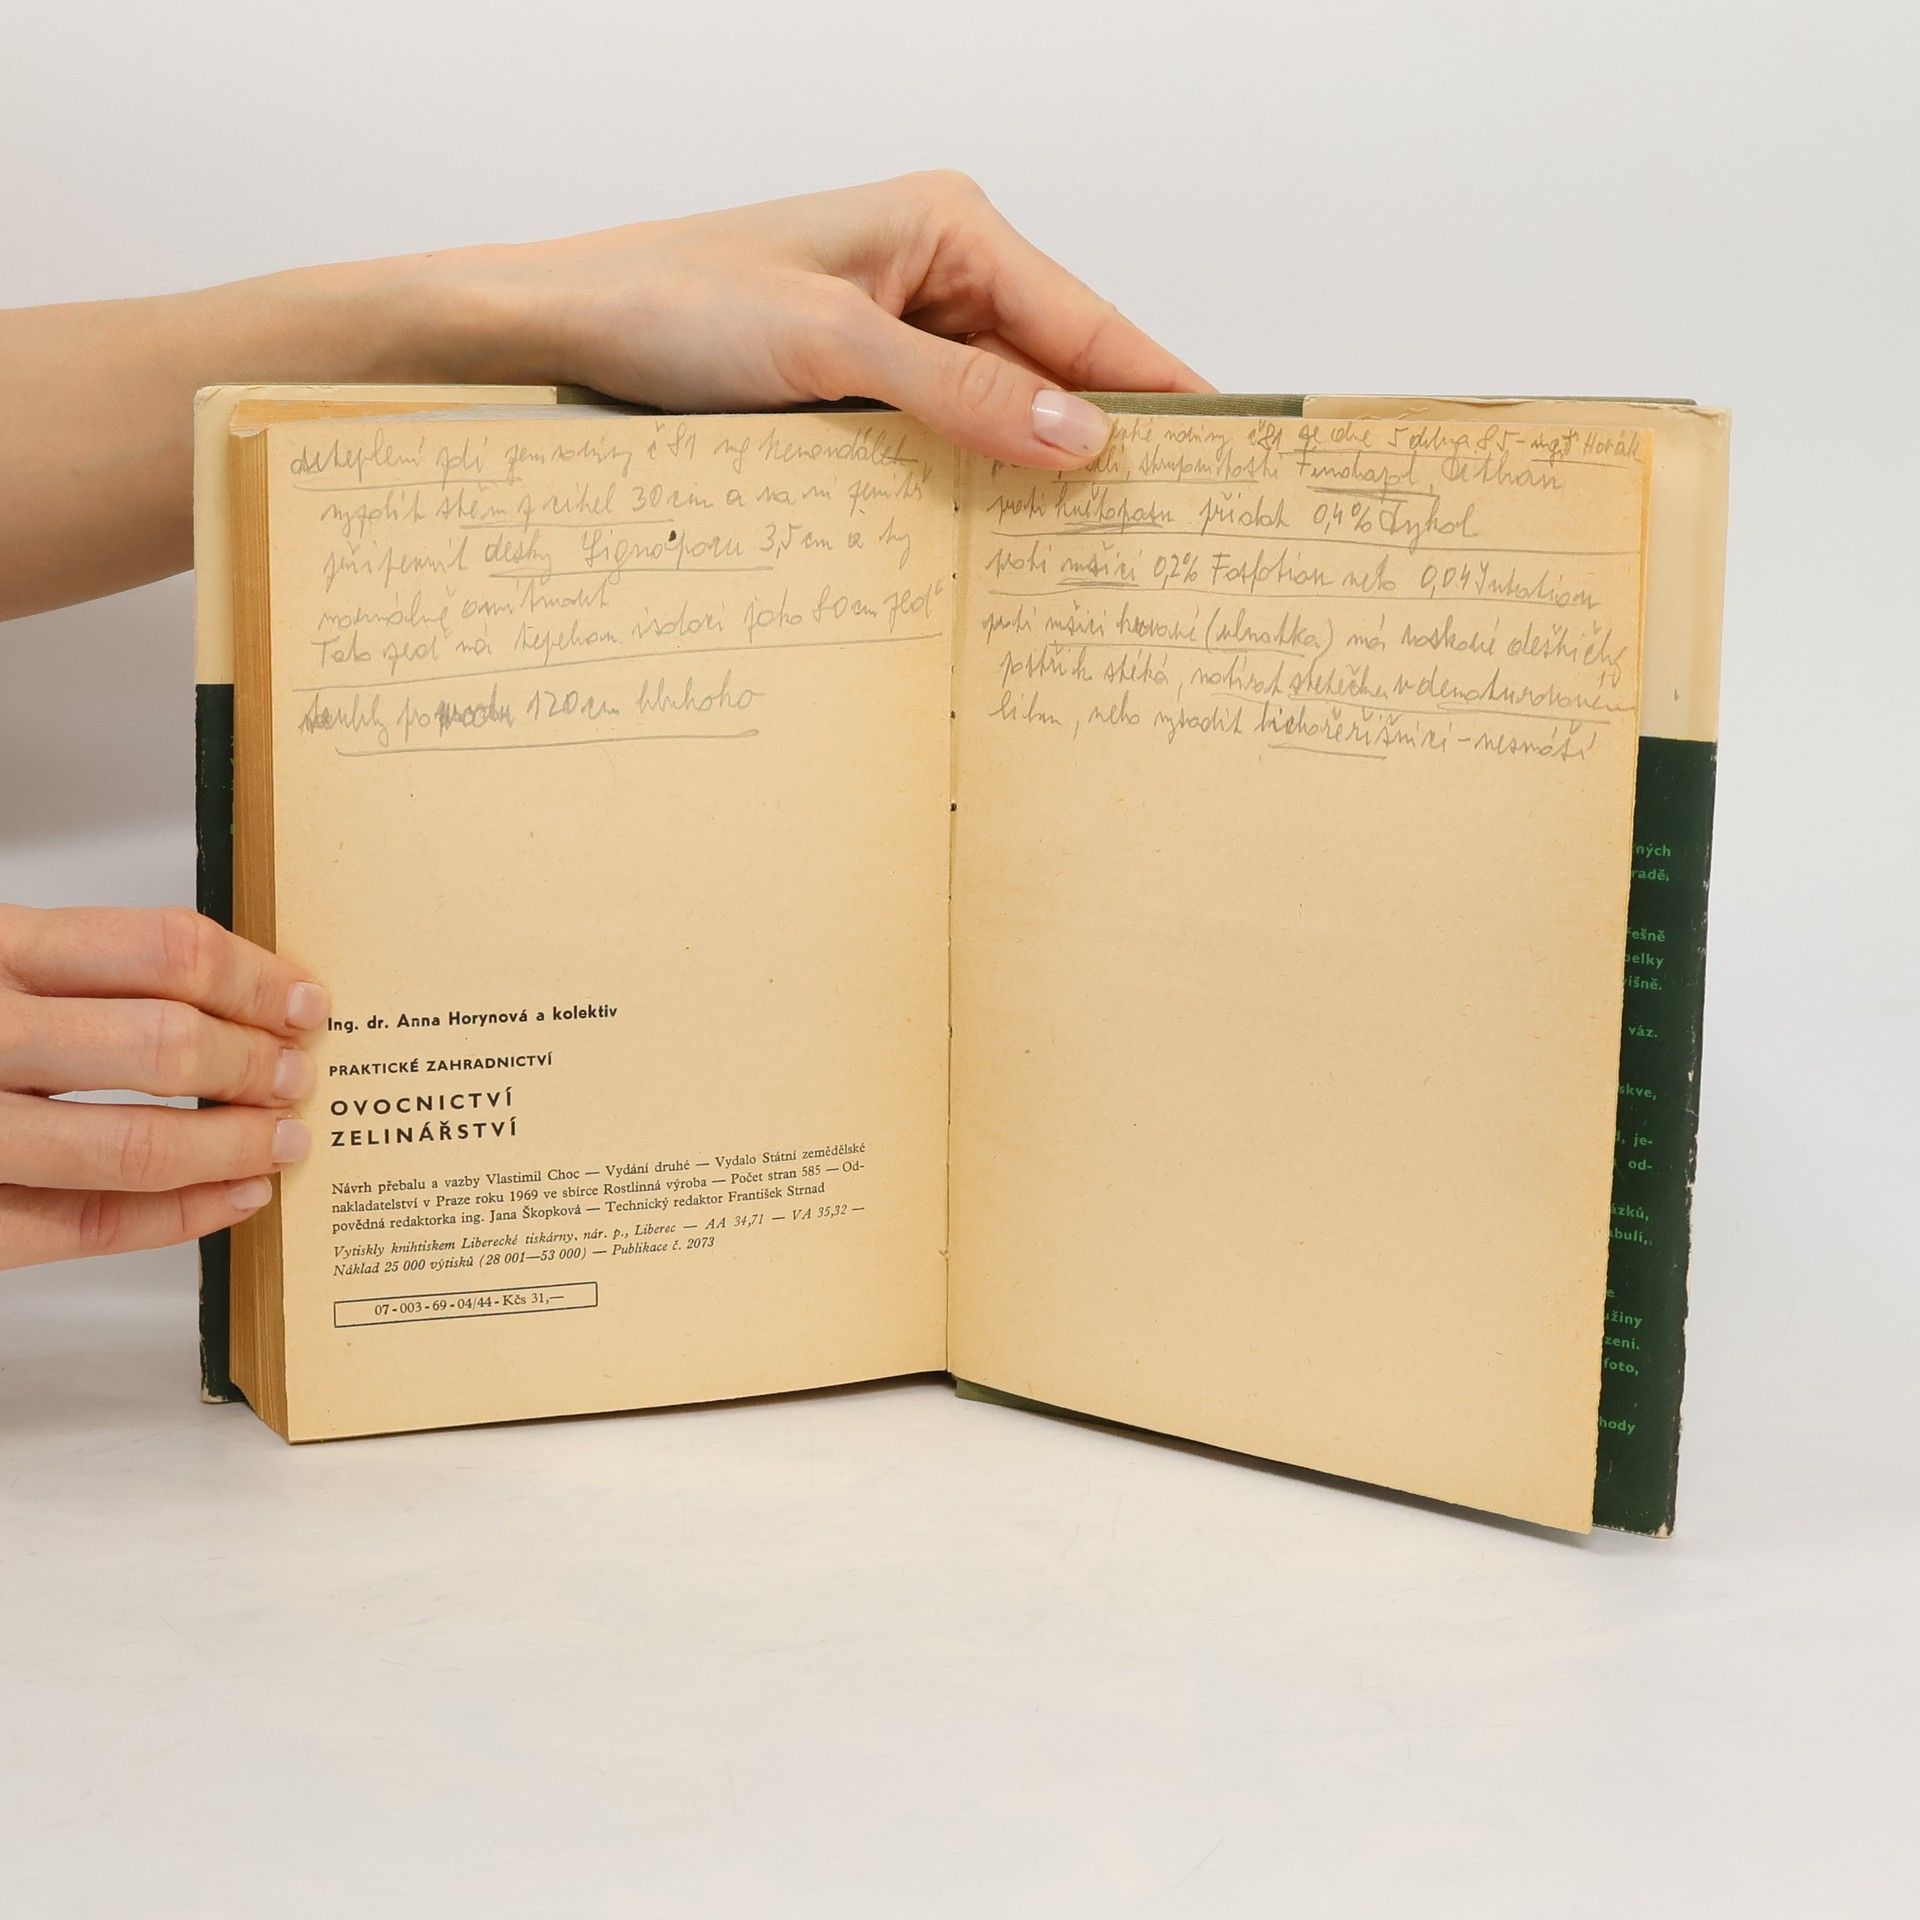 zdí č 81
z cihel 30 cm a na ni zevnitř
připevnit desky Lignoporu 3,5 cm a ty
normálně omítnout
Tato zeď má tepelnou isolaci jako 80 cm zeď
120 cm hluboko
Ing. dr. Anna Horynová a kolektiv
PRAKTICKÉ ZAHRADNICTVÍ
OVOCNICTVÍ
ZELINÁŘSTVÍ
Návrh přebalu a vazby Vlastimil Choc — Vydání druhé — Vydalo Státní zemědělské
nakladatelství v Praze roku 1969 ve sbírce Rostlinná výroba — Počet stran 585 — Od-
povědná redaktorka ing. Jana Škopková — Technický redaktor František Strnad
Vytiskly knihtiskem Liberecké tiskárny, nár. p., Liberec — AA 34,71 — VA 35,32 —
Náklad 25 000 výtisků (28 001—53 000) — Publikace č. 2073
07-003-69-04/44-Kčs 31,—
noviny č 81 ze dne 5 dubna 85 - Horák
Fundazol, Dithan
proti přidat 0,4% Sykol
proti mšici 0,2% Fosfotion nebo 0,04 Intration
proti mšici krvavé (vlnatka) má voskové destičky
postřik stéká, natírat štětečkem v denaturovaném
lihu, nebo vysadit lichořeřišnici - nesnáší
čných
radě.
řešně
pelky
višně.
váz.
skve,
d, je-
od-
ázků,
abulí,
e
užiny
zení.
foto,
hody